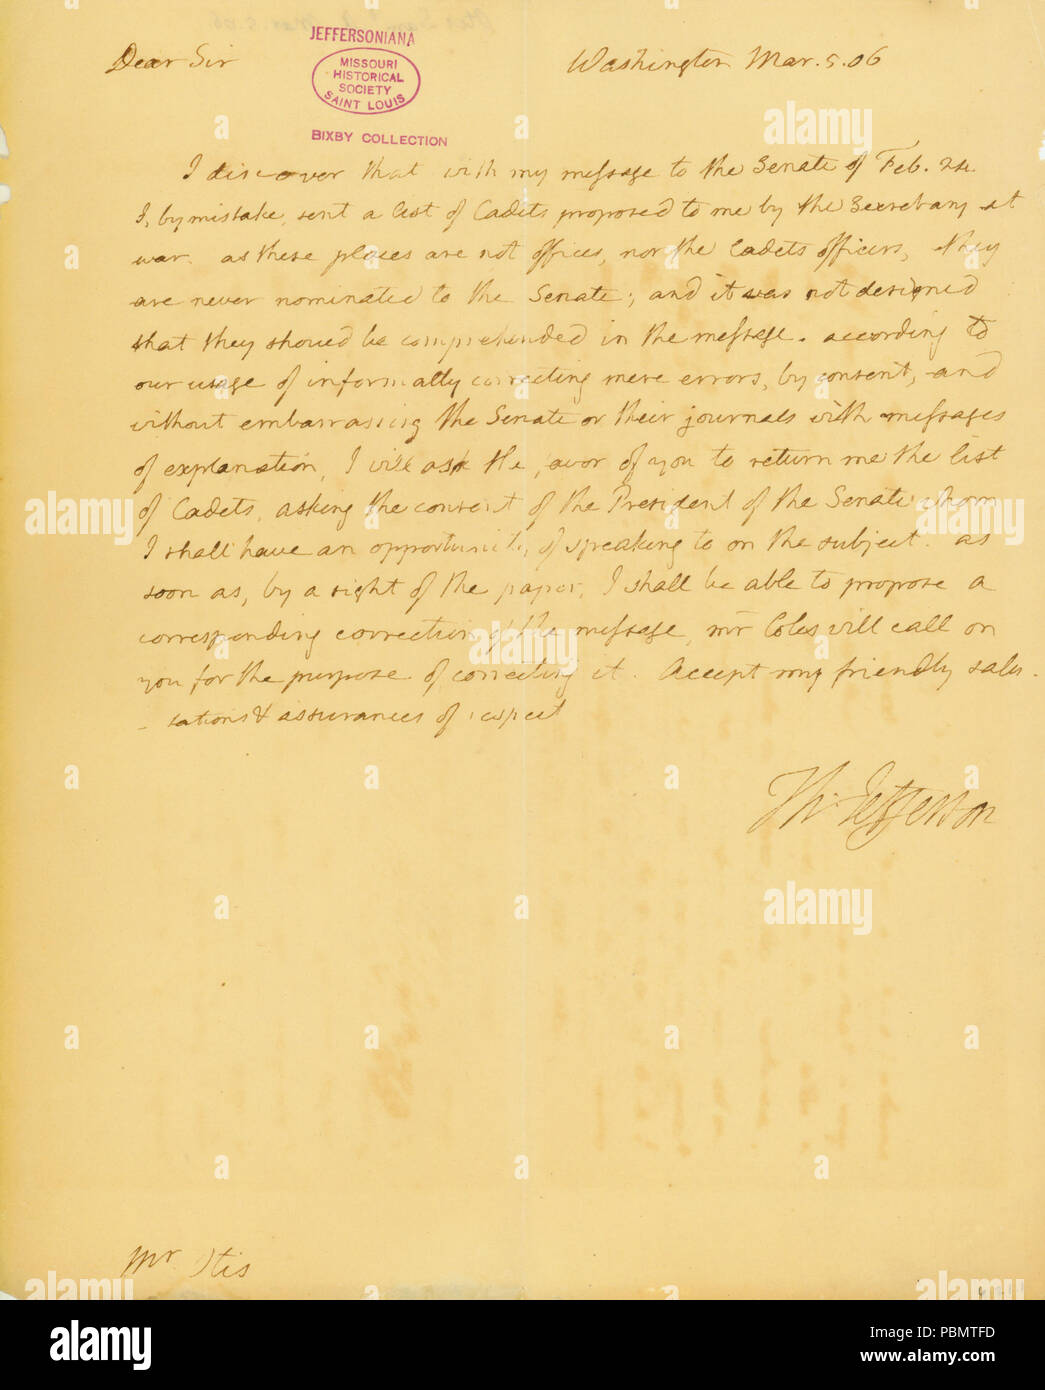 JEFFERSONIANA
MISSOURI
HISTORICAL
SOCIETY
SAINT LOUIS
BIXBY COLLECTION
Dear Sir
Washington Mar. 5. 06
I discover that with my message to the Senate of Feb.
I, by mistake, sent a list of Cadets proposed to me by the Secretary at
war. as these places are not offices, nor the Cadets officers, they
are never nominated to the Senate; and it was not designed
that they should be comprehended in the message. according to
our usage of informally correcting mere errors, by consent, and
without embarrassing the Senate or their journals with messages
of explanation, I will ask the favor of you to return me the list
of Cadets, asking the consent of the President of the Senate whom
I shall have an opportunity of speaking to on the subject. as
soon as, by a sight of the paper, I shall be able to propose a
corresponding correction of the message, mr Coles will call on
you for the purpose of correcting it. Accept my friendly salu-
-tations & assurances of respect
Th: Jefferson
Mr. Otis
alamy
Image ID: PBMTFD
www.alamy.com